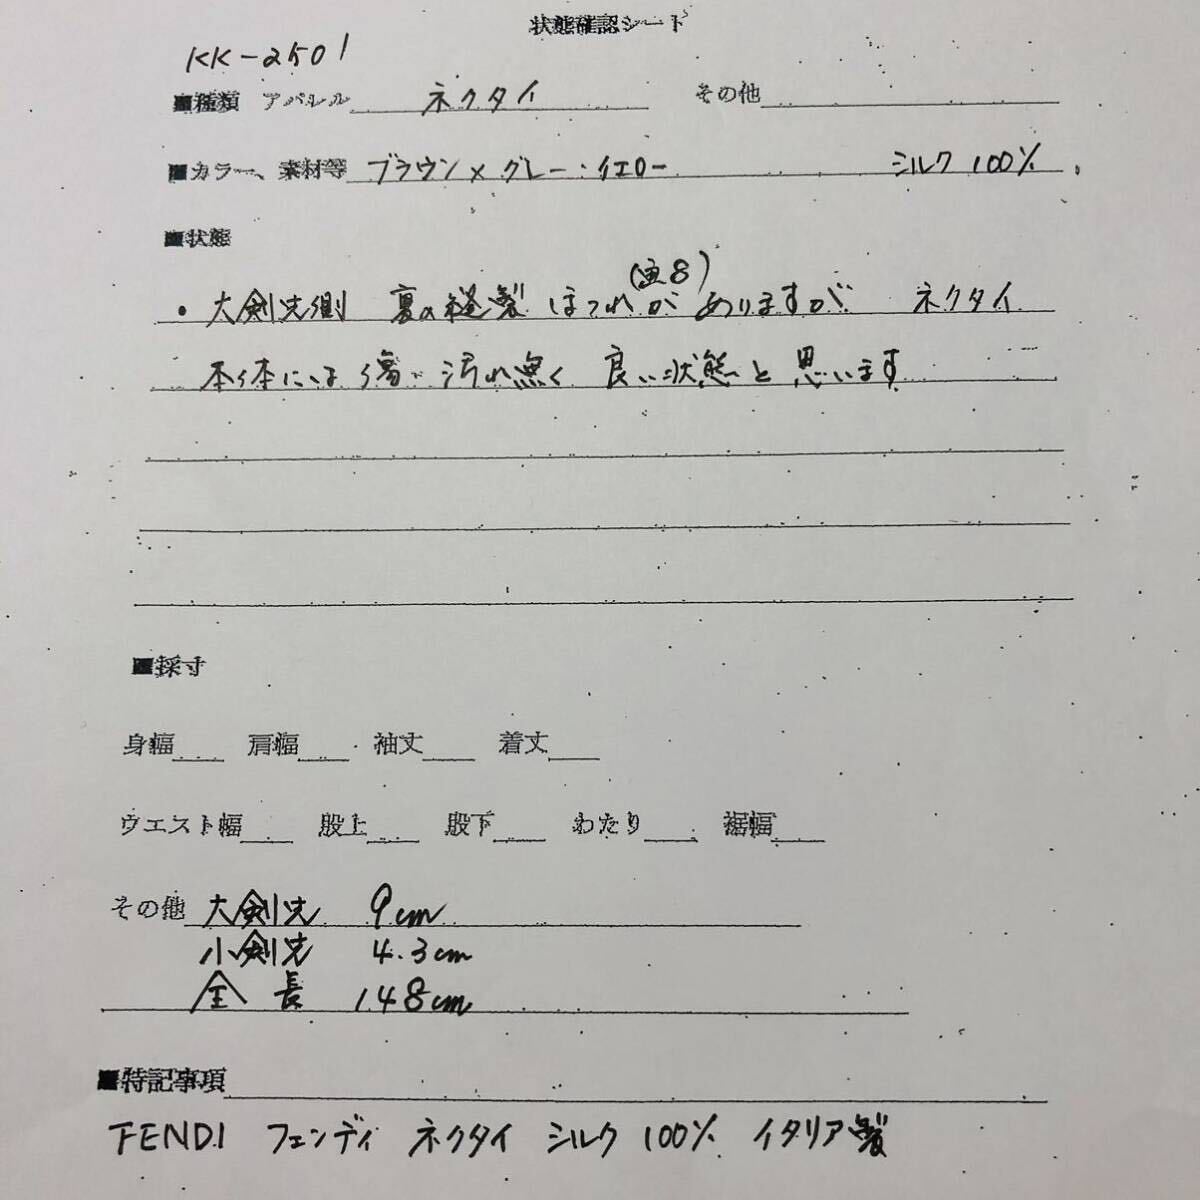 状態確認シート
KK-2501
■種類 アパレル ネクタイ その他
■カラー、素材等 ブラウン×グレー・イエロー シルク100%
■状態
(画8)
・大剣先側 裏の縫製 ほつれがありますが ネクタイ
本体には傷・汚れ無く 良い状態と思います
■採寸
身幅 肩幅 袖丈 着丈
ウエスト幅 股上 股下 わたり 裾幅
その他 大剣先 9cm
小剣先 4.3cm
全長 148cm
■特記事項
FENDI フェンディ ネクタイ シルク100% イタリア製